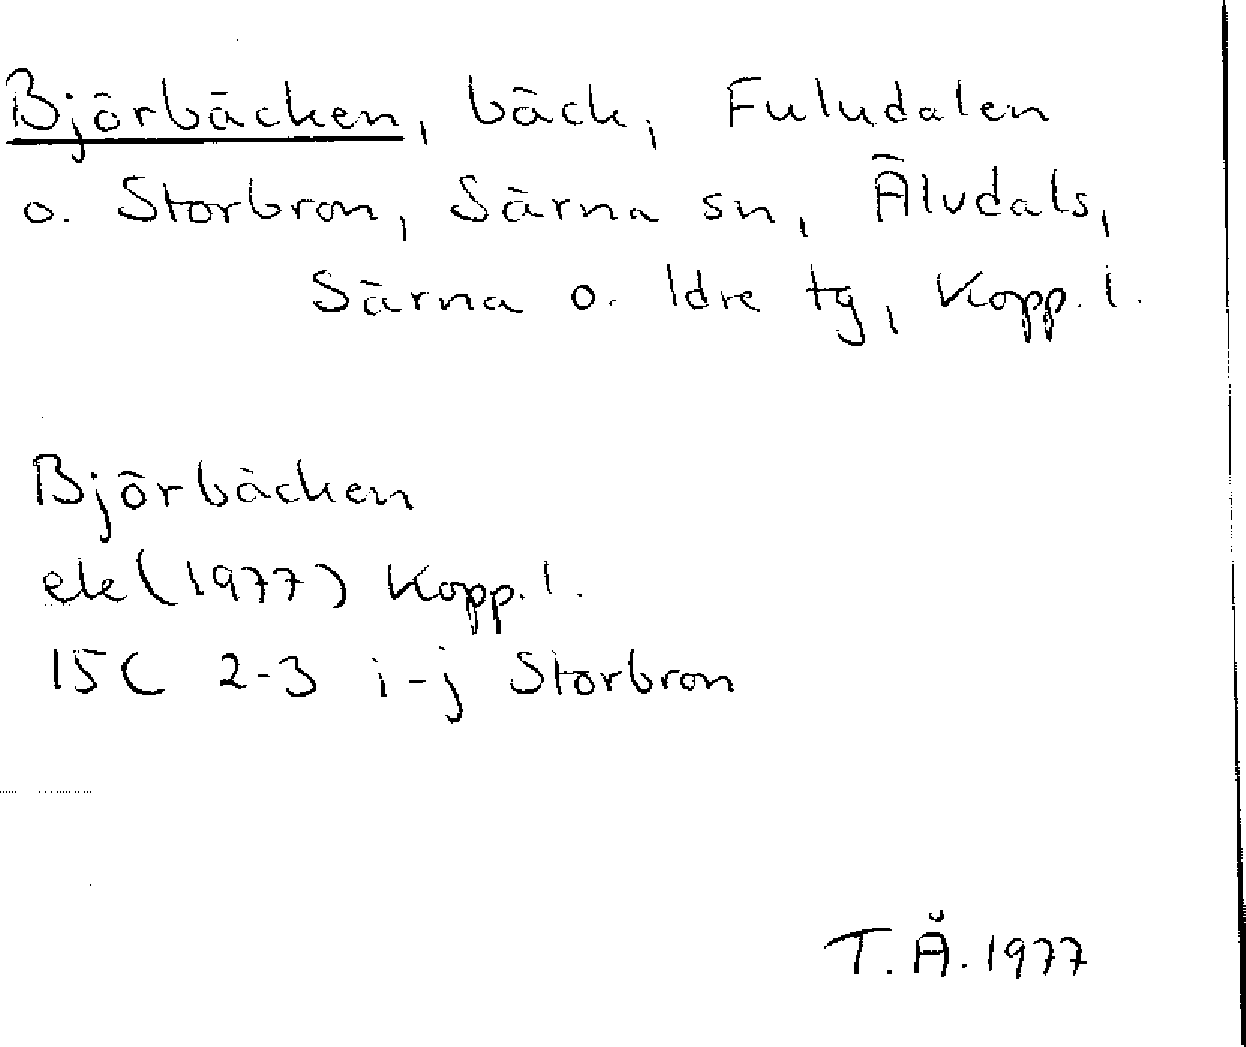 Björbäcken, bäck, Fuludalen
o. Storbron, Särna sn, Älvdals,
Särna o. Idre tg, Kopp. l.
Björbäcken
ek (1977) Kopp. l.
15C 2-3 i-j Storbron
T. Å. 1977